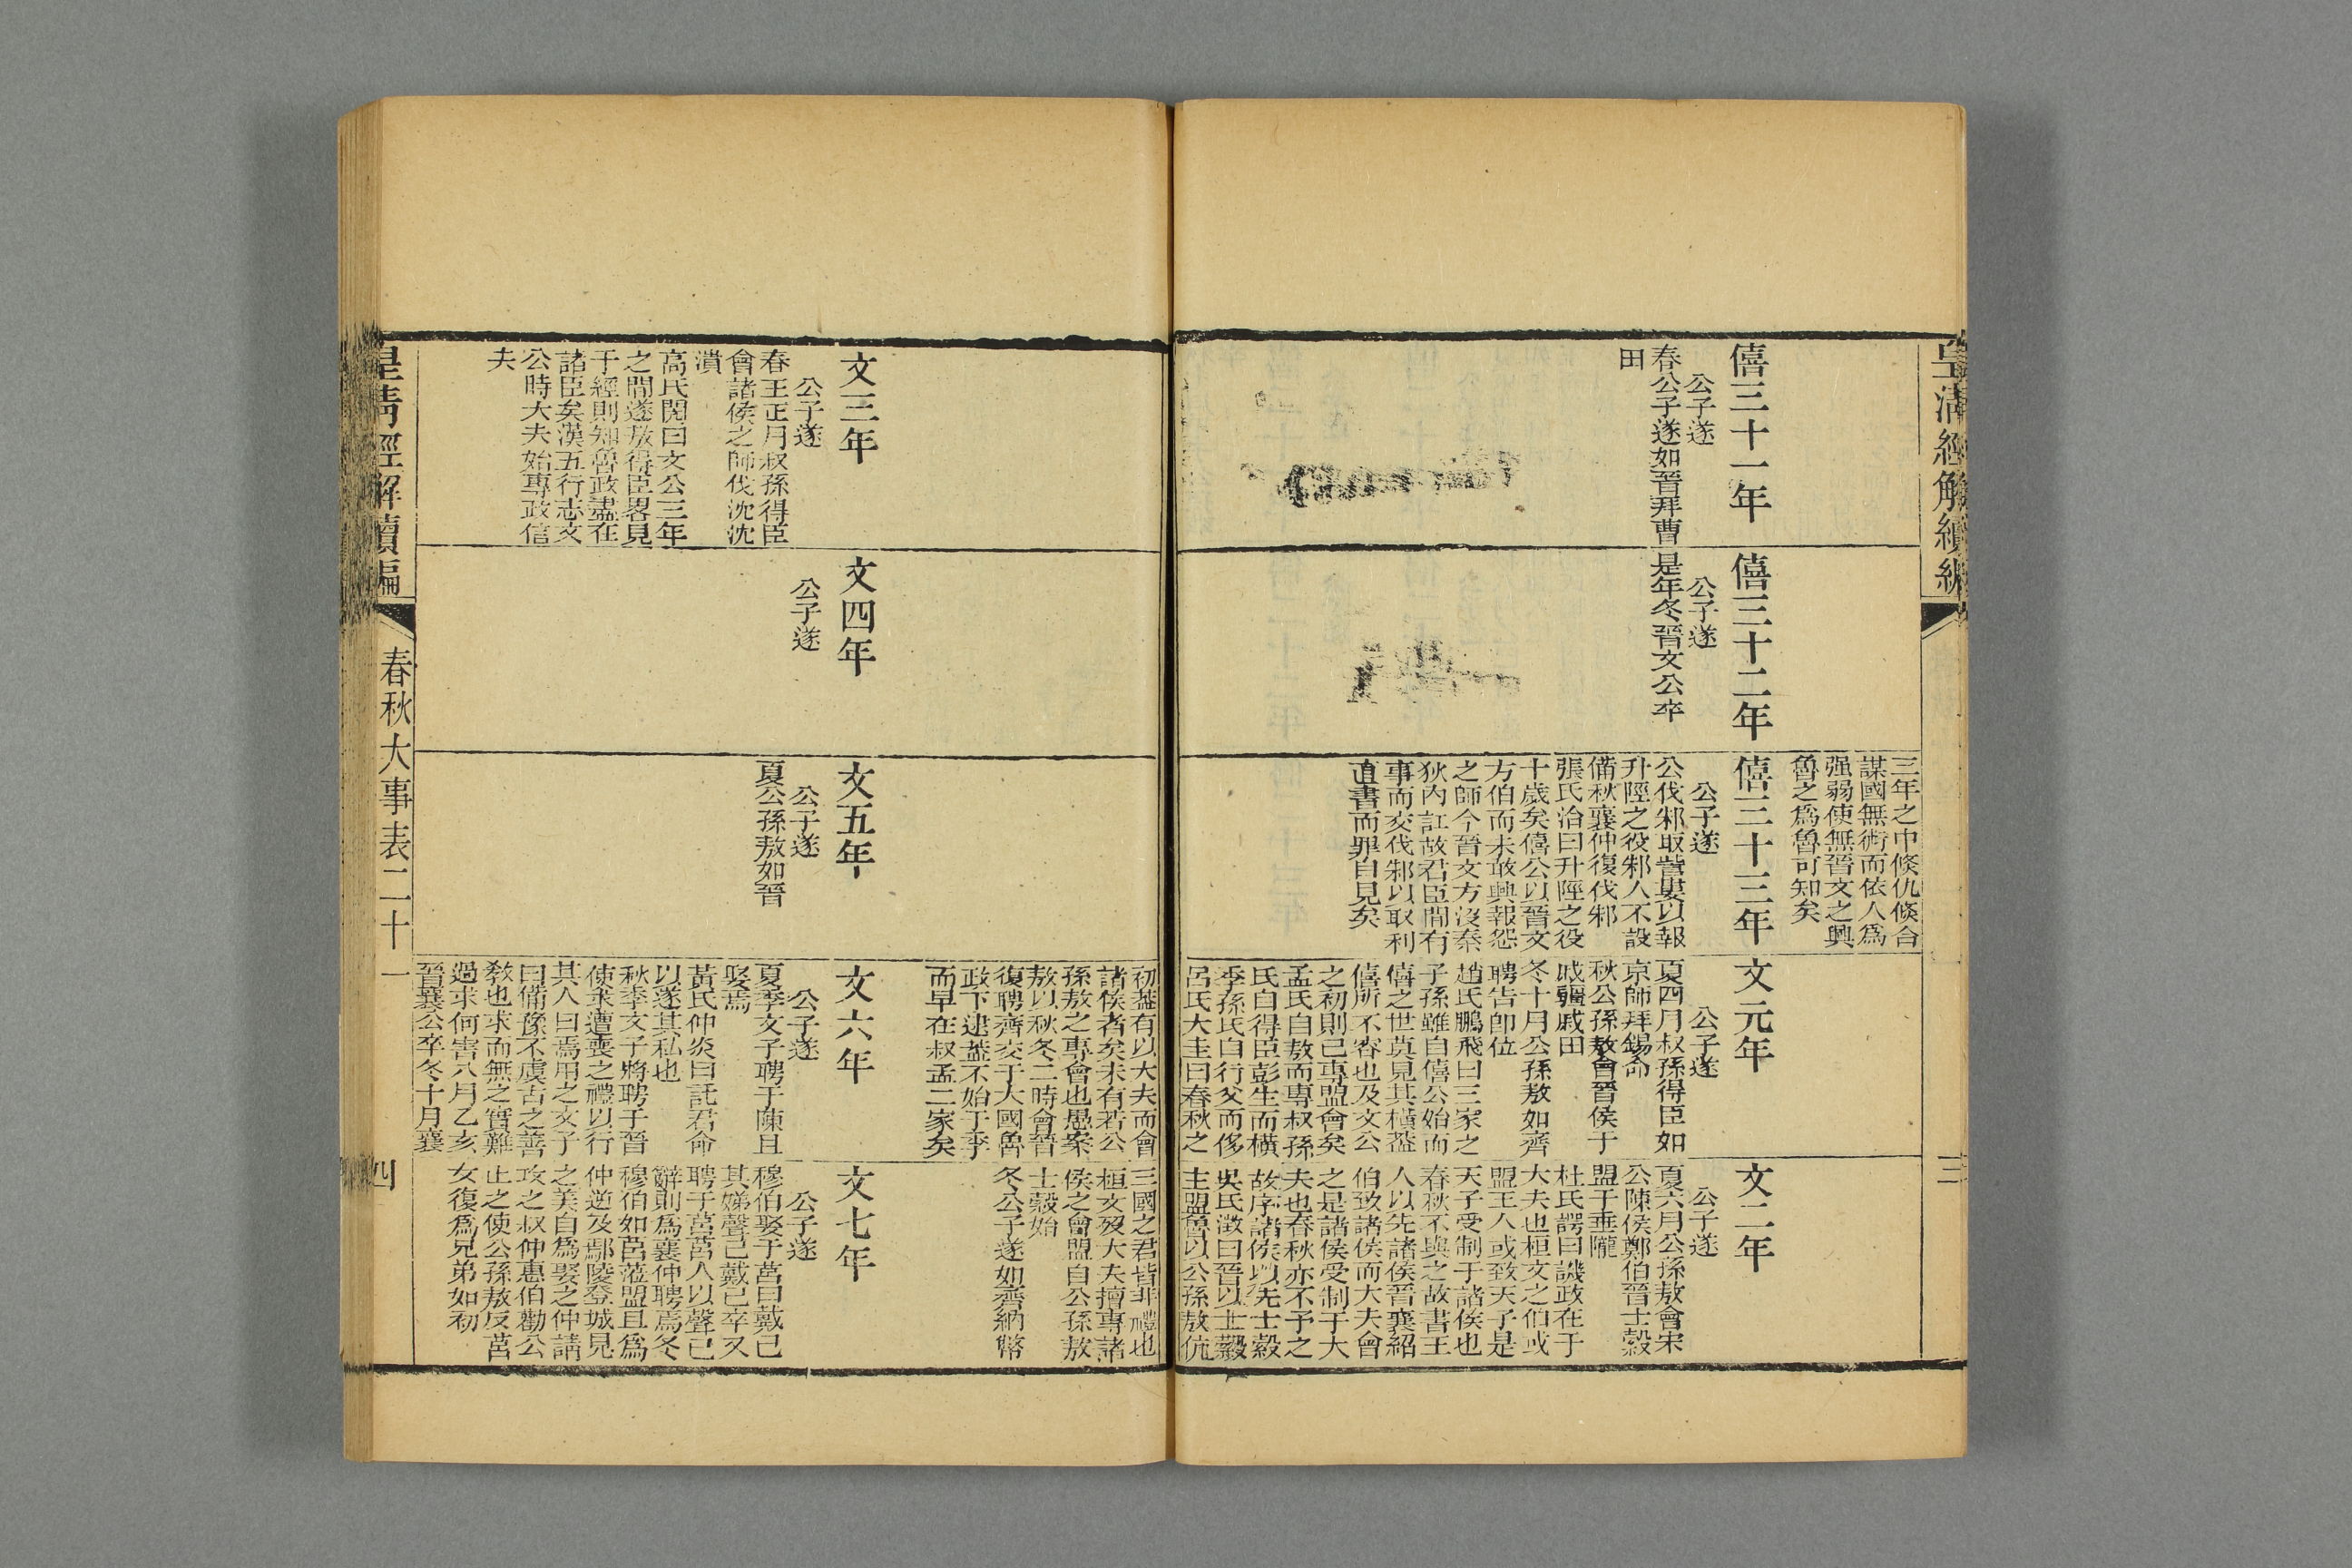 皇清經解續編
三
三年之中倐仇倐合
謀國無術而依人爲
强弱使無晉文之興
魯之爲魯可知矣
僖三十一年
公子遂
春公子遂如晉拜曹
田
僖三十二年
公子遂
是年冬晉文公卒
僖三十三年
公子遂
公伐邾取訾婁以報
升陘之役邾人不設
備秋襄仲復伐邾
張氏洽曰升陘之役
十歲矣僖公以晉文
方伯而未敢興報怨
之師今晉文方沒秦
狄内訌故君臣間有
事而交伐邾以取利
直書而罪自見矣
文元年
公子遂
夏四月叔孫得臣如
京師拜錫命
秋公孫敖會晉侯于
戚疆戚田
冬十月公孫敖如齊
聘告卽位
趙氏鵬飛曰三家之
子孫雖自僖公始而
僖之世莫見其橫葢
僖所不容也及文公
之初則已專盟會矣
孟氏自敖而專叔孫
氏自得臣彭生而橫
季孫氏自行父而侈
呂氏大圭曰春秋之
文二年
公子遂
夏六月公孫敖會宋
公陳侯鄭伯晉士縠
盟于垂隴
杜氏諤曰譏政在于
大夫也桓文之伯或
盟王人或致天子是
天子受制于諸侯也
春秋不與之故書王
人以先諸侯晉襄紹
伯致諸侯而大夫會
之是諸侯受制于大
夫也春秋亦不予之
故序諸侯以先士縠
吳氏澂曰晉以士縠
主盟魯以公孫敖伉
初葢有以大夫而會
諸侯者矣未有若公
孫敖之專會也愚案
敖以秋冬二時會晉
復聘齊交于大國魯
政下逮葢不始于季
而早在叔孟二家矣
三國之君皆非禮也
桓文歿大夫擅專諸
侯之會盟自公孫敖
士縠始
冬公子遂如齊納幣
文三年
公子遂
春王正月叔孫得臣
會諸侯之師伐沈沈
潰
高氏閌曰文公三年
之間遂敖得臣畧見
于經則知魯政盡在
諸臣矣漢五行志文
公時大夫始專政信
夫
文四年
公子遂
文五年
公子遂
夏公孫敖如晉
文六年
公子遂
夏季文子聘于陳且
娶焉
黃氏仲炎曰託君命
以遂其私也
秋季文子將聘于晉
使求遭喪之禮以行
其人曰焉用之文子
曰備豫不虞古之善
敎也求而無之實難
過求何害八月乙亥
晉襄公卒冬十月襄
文七年
公子遂
穆伯娶于莒曰戴己
其娣聲己戴己卒又
聘于莒莒人以聲己
辭則爲襄仲聘焉冬
穆伯如莒蒞盟且爲
仲逆及鄢陵登城見
之美自爲娶之仲請
攻之叔仲惠伯勸公
止之使公孫敖反莒
女復爲兄弟如初
皇清經解續編
春秋大事表二十一
四